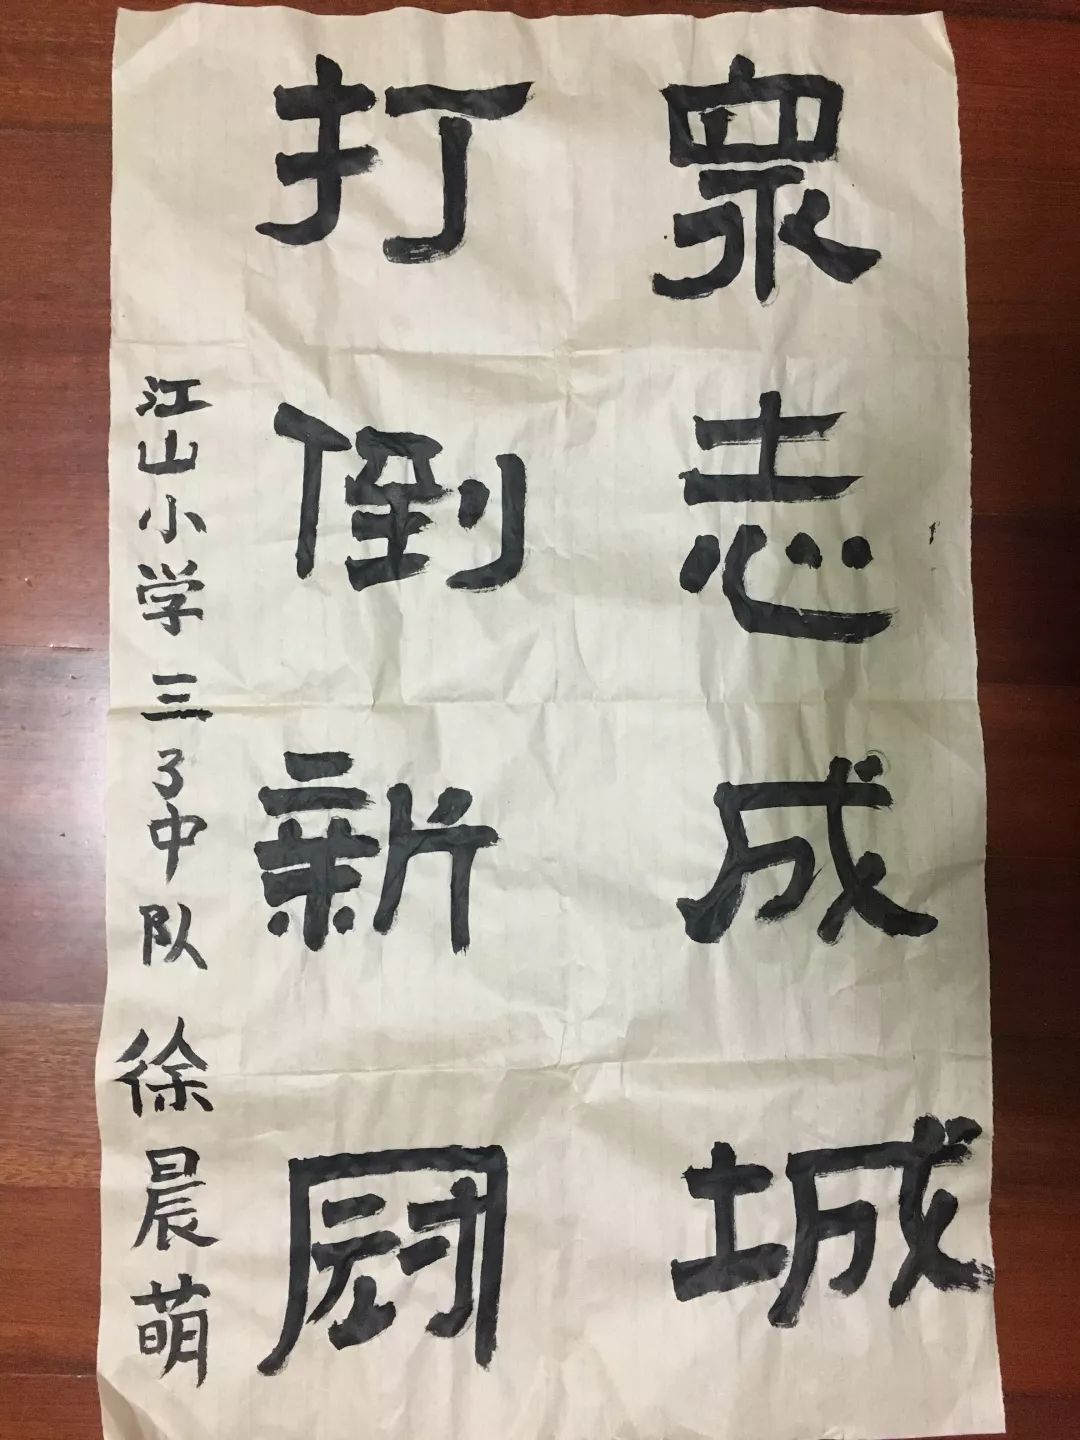 眾志成城
打倒新冠
江山小学三3中队 徐晨萌